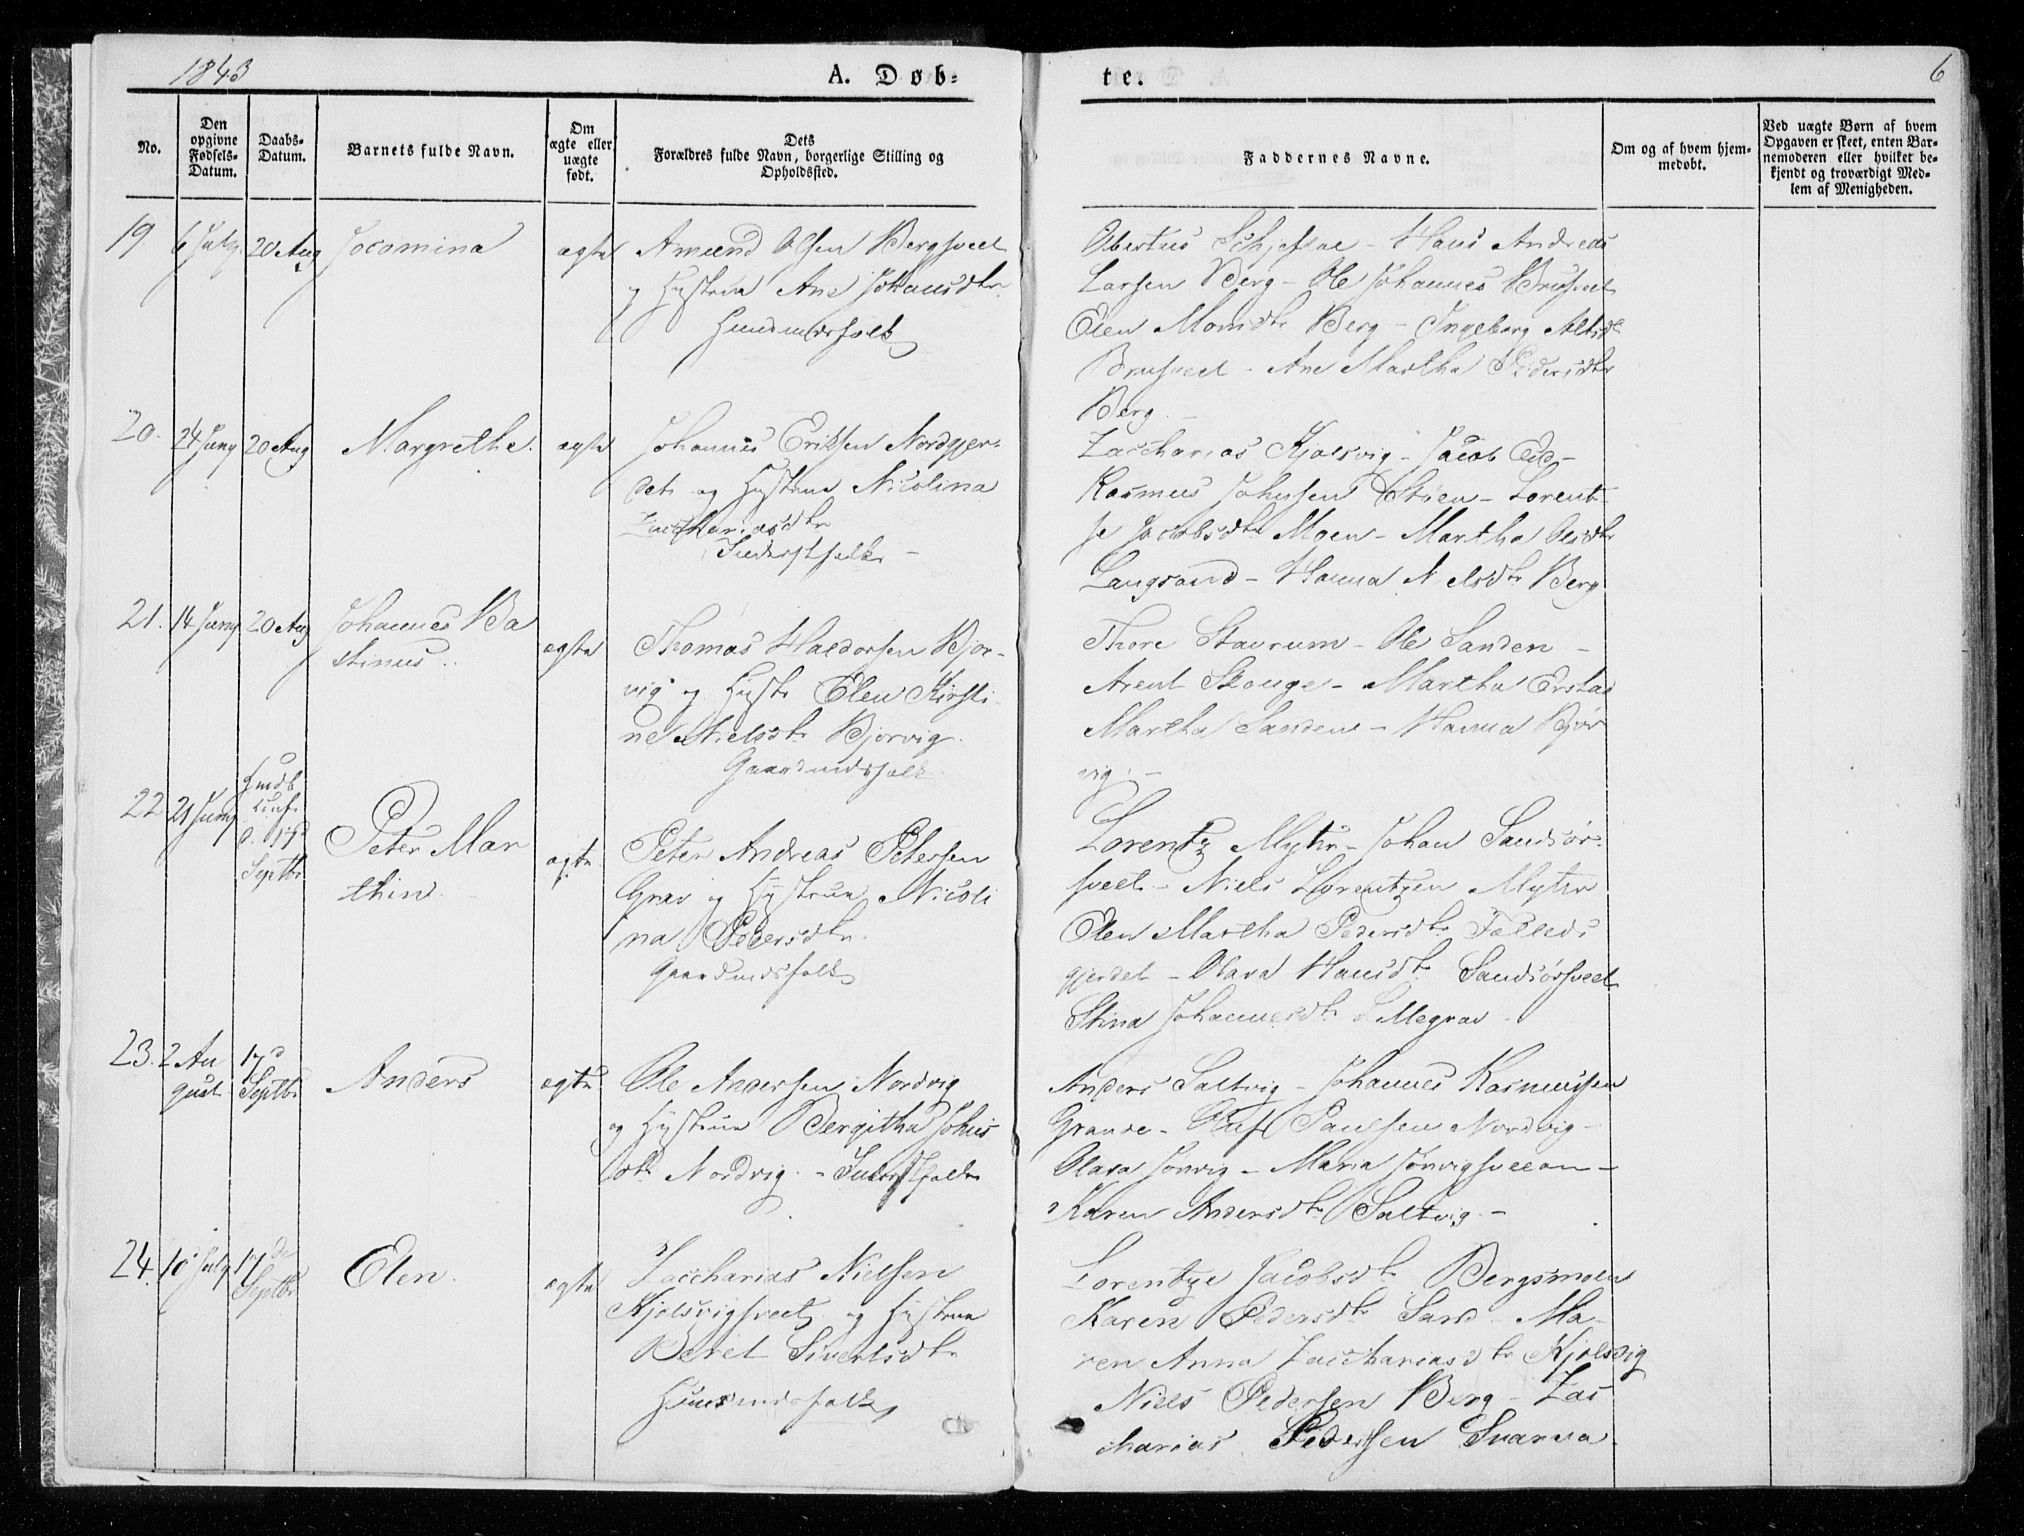 1843
A. Døb=
te.
6
No.
Den opgivne Fødsels-Datum.
Daabs-Datum.
Barnets fulde Navn.
Om ægte eller uægte født.
Dets Forældres fulde Navn, borgerlige Stilling og Opholdssted.
Faddernes Navne.
Om og af hvem hjemmedøbt.
Ved uægte Børn af hvem Opgaven er skeet, enten Barnemoderen eller hvilket bekjendt og troværdigt Medlem af Menigheden.
19. 6 July 20 Aug Jocomina ægte
Amund Olsen Bergsveet
og Hustrue Ane Johansdtr
Huusmdsfolk
Larsen Berg - Ole Johannes Brusveet
Elen Monsdtr Berg - Ingeborg
Brusveet - Ane Martha Pedersdtr
Berg.
20. 24 Juny 20 Aug Margrethe. ægte
Johannes Eriksen Nordgjer-
det og Hustrue Nicolina
Zacchariasdtr
Inderstfolk -
Zaccharias Kjølsvig - Jacob Eide -
Rasmus Johnsen Stien - Lorent-
se Jacobsdtr Moen - Martha Olsdtr
Langsand - Hanna Nielsdtr Berg
21. 14 Juny 20 Aug Johannes Ba
stinus. ægte
Thomas Haldorsen Bjør-
vig og Hustr Elen Kirsti
ne Nielsdtr Bjørvig.
Gaardmdsfolk
Thore Stavrum - Ole Sanden -
Arent Skouge - Martha
Martha Sandene - Hanna Bjør
vig. -
22 21 Juny
d. 17d
Septbr
Peter Mar
thin. ægte
Peter Andreas Petersen
Grav og Hystrue Nicoli
na Pedersdtr.
Gaardmdsfolk
Lorentz Myhr - Johan Sandsør-
sveet - Niels Lorentzen Myhr
Elen Martha Pedersdtr
gjerdet - Olava Hansdtr Sandsørsveet
Stina Johannesdtr Lillegrav -
23. 2 Au
gust 17d
Septbr Anders ægte
Ole Andersen Nordvig
og Hystrue Bergitha Johns
dtr Nordvig. - Inderstfolk
Anders Saltvig - Johannes Rasmussen
Grande - Oluf Paulsen Nordvig -
Olava Jønvig - Maria Jønvigsveen -
Karen Andersdtr Saltvig. -
24. 10 July 17de
Septbr Elen. ægte
Zaccharias Nielsen
Kjølsvigsveet og Hystrue
Beret Sivertsdtr
Huusmdsfolk
Lorentze Jacobsdtr Bergsmoen
Karen Pedersdtr Sand - Ma-
ren Anna Zacchariasdtr Kjølsvig
Niels Pedersen Berg - Zac
charias Pedersen